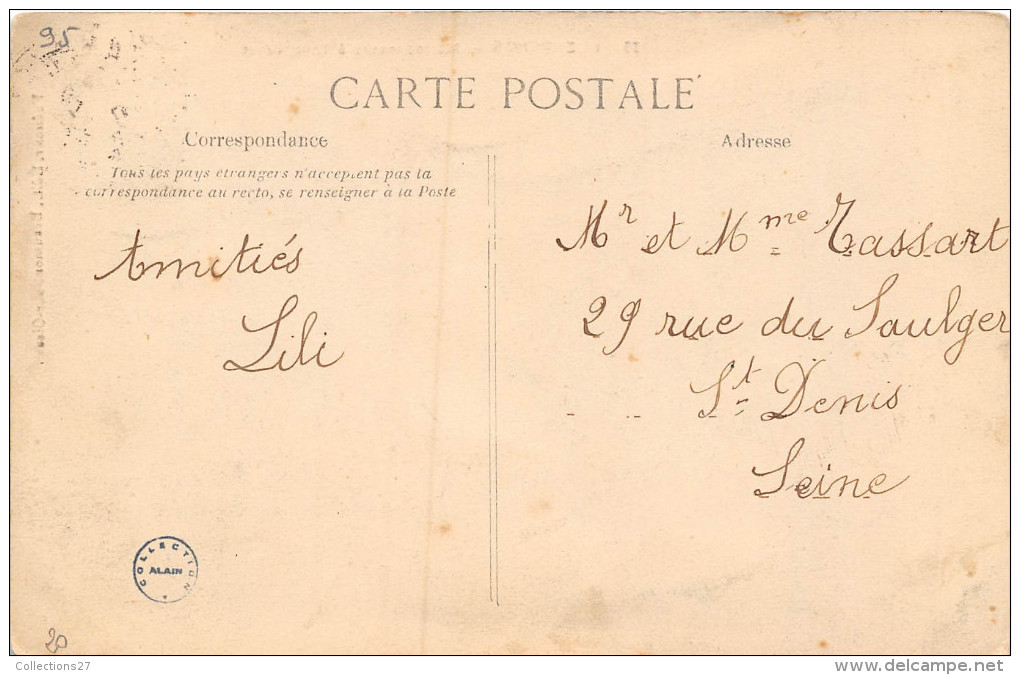 95
CARTE POSTALE
Correspondance
Tous les pays étrangers n'acceptent pas la
correspondance au recto, se renseigner à la Poste
Amitiés
Lili
Adresse
Mr et Mme Tassart
29 rue du Saulger
St Denis
Seine
COLLECTION
ALAIN
20
Collections27
delcampe.net